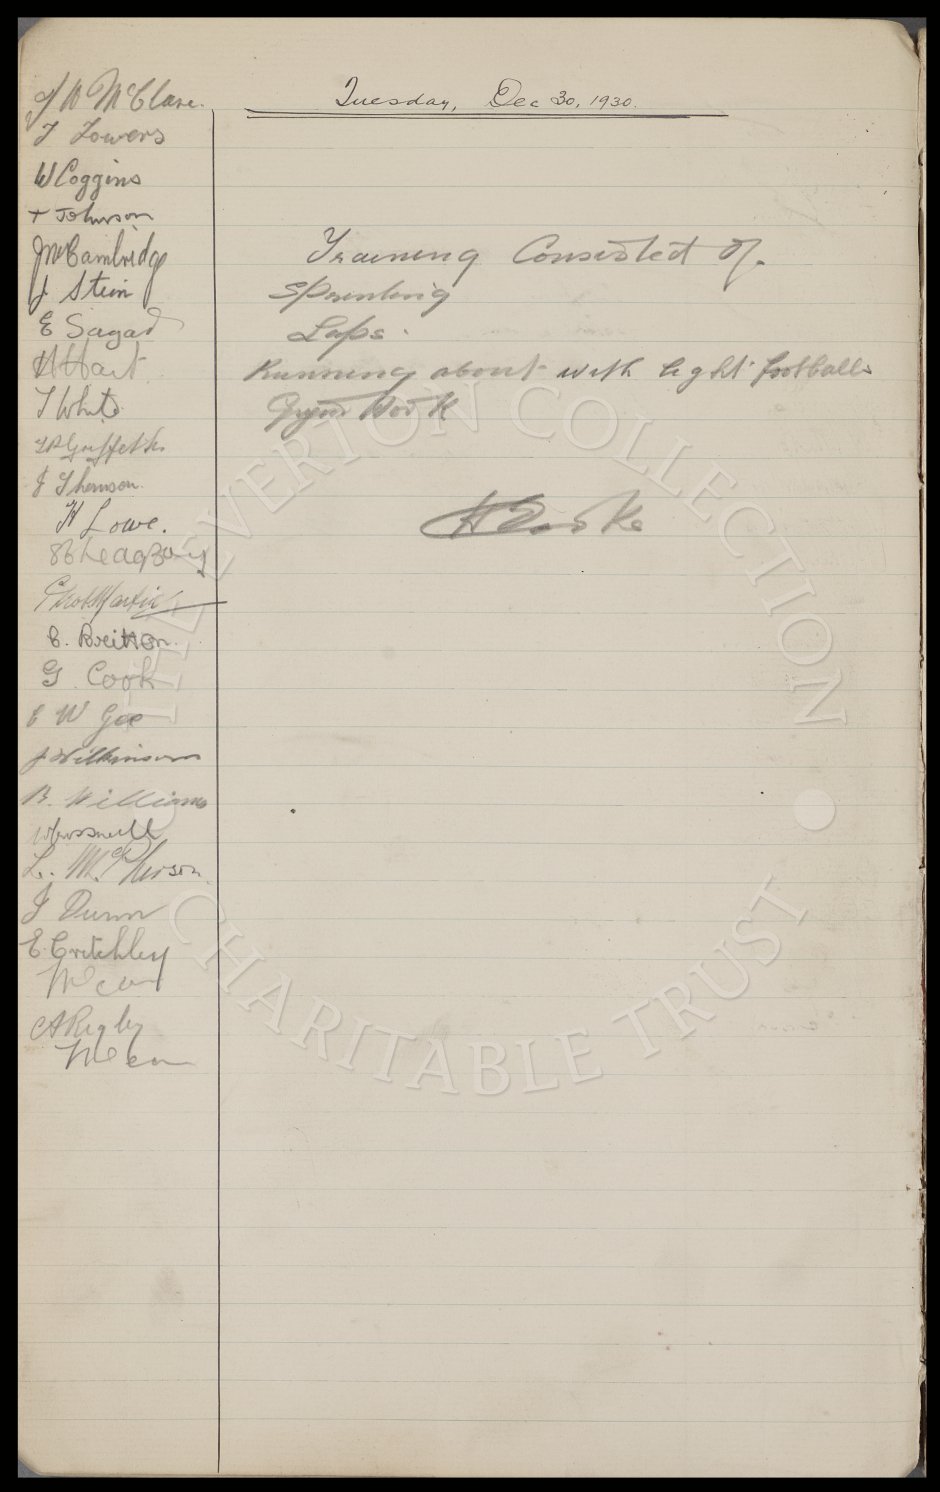 Tuesday, Dec 30, 1930.
J W McClare.
T Lowers
W Coggins
T Johnson
J McCambridge
J Stein
E Sagar
H Hart
T White
T P Griffiths
J Thomson.
H Lowe.
Geo Martin
C. Britton.
G Cook
C W Gee
J Wilkinson
B. Williams
L. McPherson.
J Dunn
E. Critchley
A Rigby
Training Consisted Of.
Sprinting
Laps.
Running about with light footballs
Gym Work
H Cooke
THE EVERTON COLLECTION
CHARITABLE TRUST